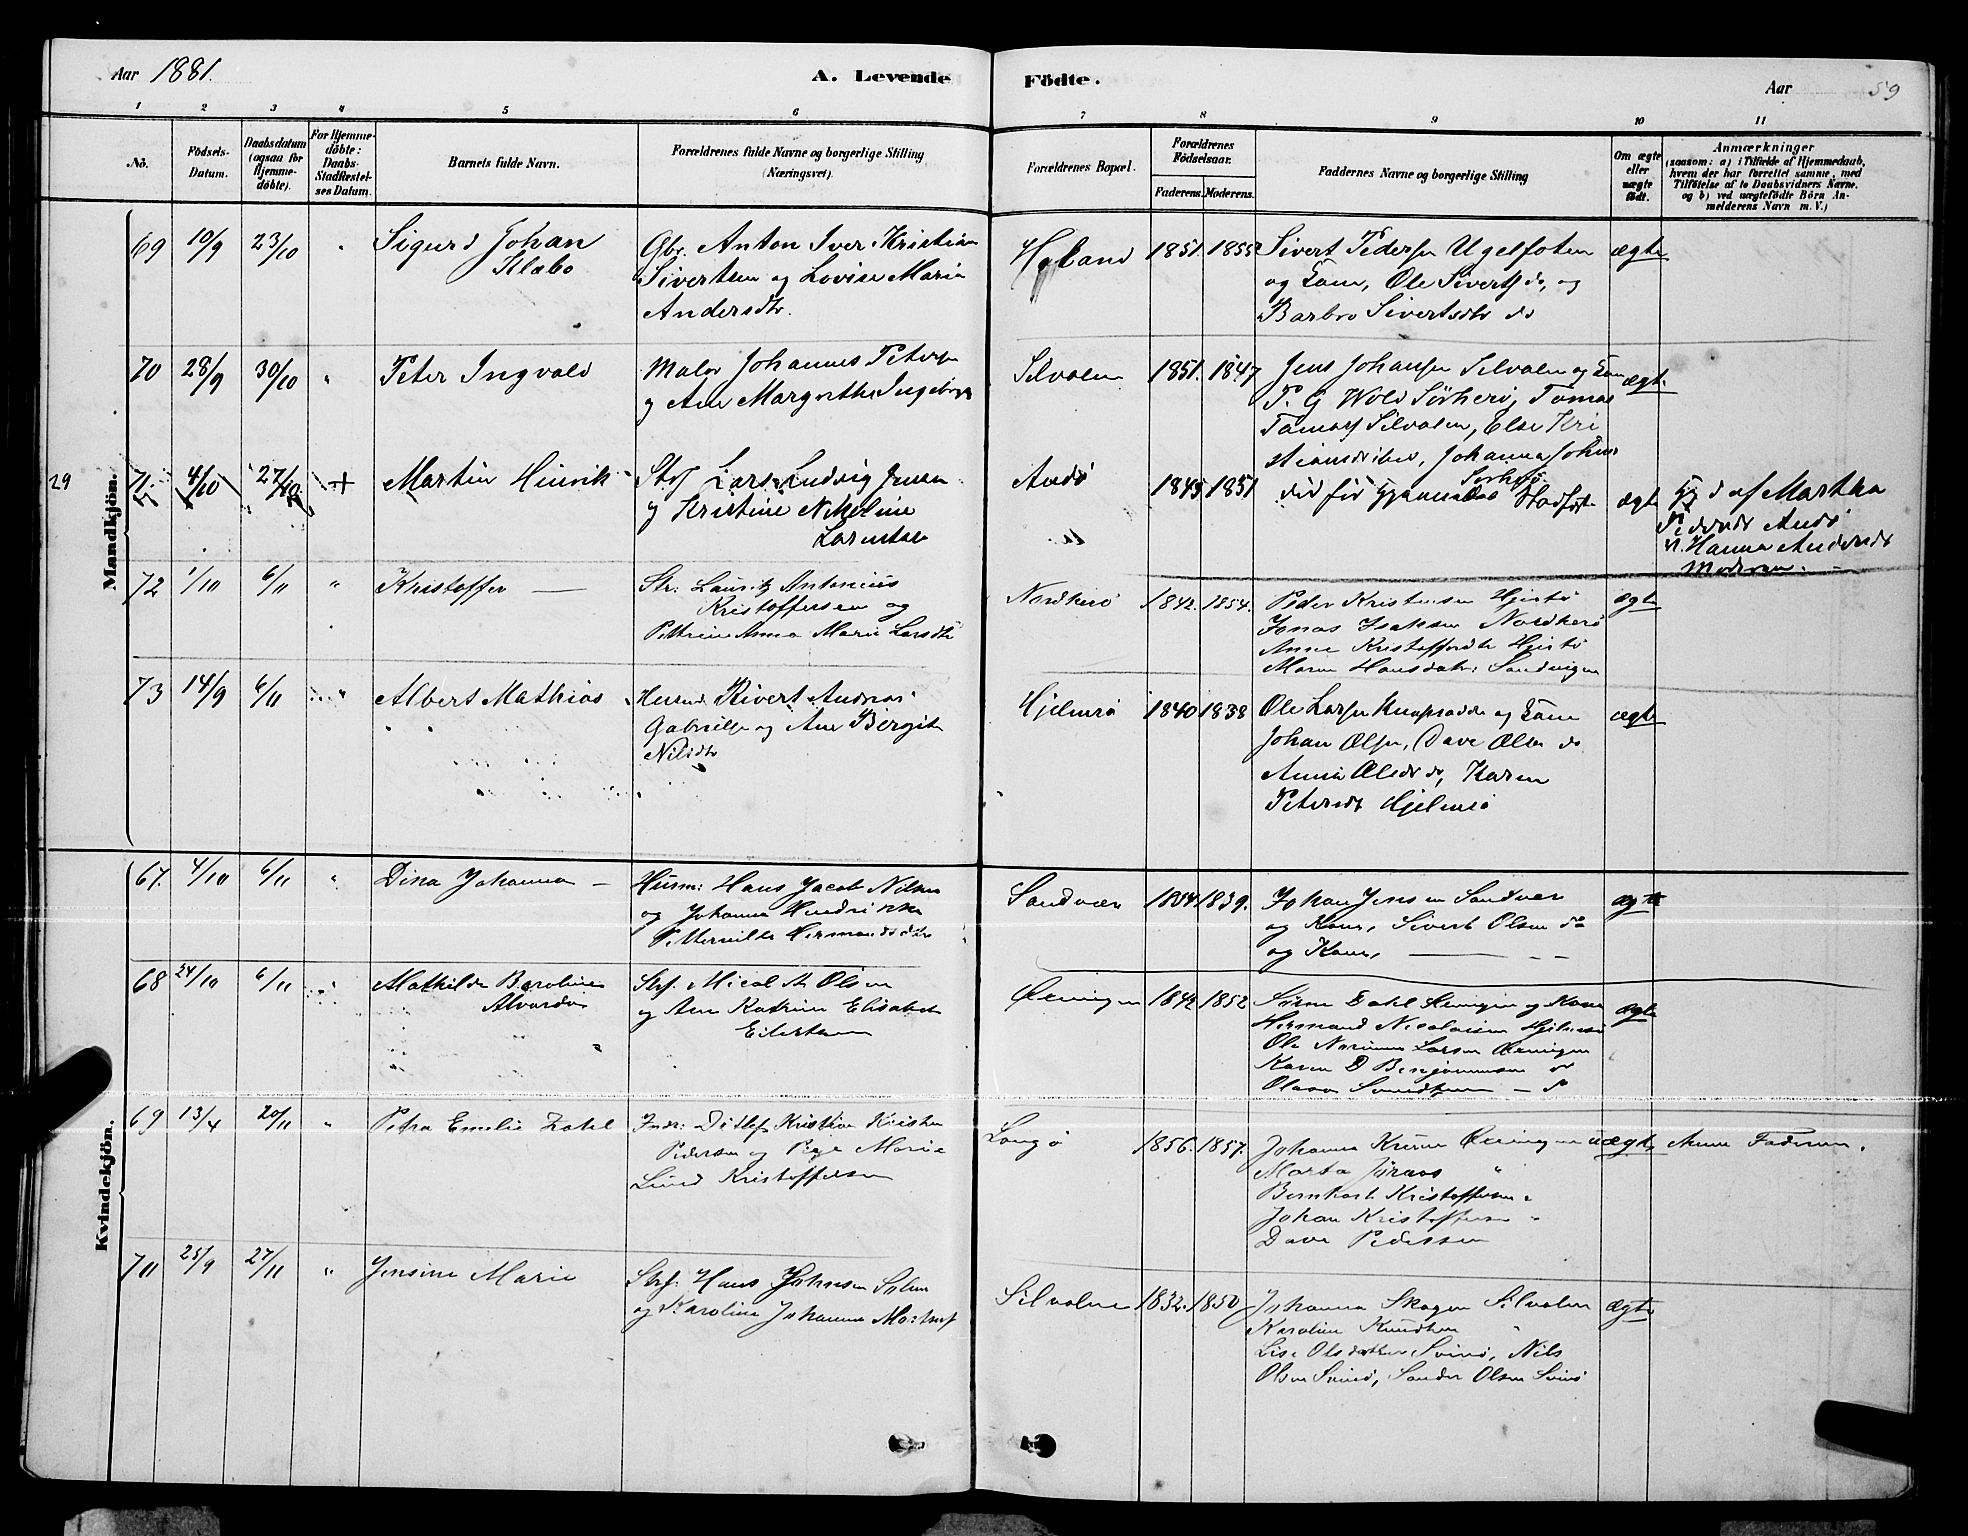 Aar 1881.
A. Levende
Födte.
Aar
59
1 2 3 4 5 6
7 8 9 10 11
No.
Födsels-
Datum.
Daabsdatum
(ogsaa for
Hjemme-
döbte).
For Hjemme-
döbte:
Daabs-
Stadfæstel-
ses Datum.
Barnets fulde Navn.
Forældrenes fulde Navne og borgerlige Stilling
(Næringsvei).
Forældrenes Bopæl.
Forældrenes
Födselsaar.
Faderens. Moderens.
Faddernes Navne og borgerlige Stilling
Om ægte
eller
uægte
födt.
Anmærkninger
(saasom: a) i Tilfælde af Hjemmedaab,
hvem der har forrettet samme, med
Tilföielse af to Daabsvidners Navne.
og b) ved uægtefödte Börn An-
melderens Navn m. V.)
Mandkjön.
69 10/9 23/10 "
Sigurd Johan
Klæbo
Gbr. Anton Iver Kristian
Sivertsen og Lovise Marie
Andersdtr.
Høland
1851. 1855
Sivert Pedersen Ugelfoten
og Kone, Ole Siverts do, og
Barbro Sivertsdtr do
ægte
70 28/9 30/10 "
Peter Ingvald
Maler Johannes Peters
og Ane Margrethe Ingeborg
Silvalen
1851. 1847
Jens Johansen Silvalen og Kone
P. G Wold Sørherø, Tomas
Silvalen, Else Kri
Johanna Johns
Sørherø
ægte
29
71 4/10 27/10 +
Martin Hinrik
Str Lars Ludvig Jensen
og Kristine Nikoline
Larsen
Andø
1845 1851
Stadfæste
ægte
af Martha
Andø
Hanna Andersd
Moderen.
72 1/10 6/11 "
Kristoffer
Str: Lauritz Antonius
Kristoffersen og
Petrine Anna Marie Larsdtr
Nordherø
1842. 1854.
Peder Kristensen Hjertø
Jonas Isaksen Nordherø
Anne Kristoffersdtr Hjertø
Maren Hansdatr: Sandvigen
ægte
73 14/9 6/11 "
Albert Mathias
Sivert Andreas
Gabrielsen og Ane Bergit
Nilsdtr
Hjelmsø
1840 1838
Ole Larsen og Kone
Johan Olsen, Dave Olsen do
Anna Olsdtr do, Karen
Petersdt Hjelmsø
ægte
Kvindekjön.
67. 4/10 6/11 "
Dina Johanna
Husm: Hans Jacob Nilsen
og Johanna Hendrikke
Pettervikke Hermandsdtr
Sandvær
1854 1839.
Johan Jensen Sandvær
og Kone, Sivert Olsen do
og Kone,
ægte
68 24/10 6/11 "
Mathilde Baroline
Alvarda
Str. Micol A Olsen
og Ane Katrine Elisabet
Eilertsen
Øxningen
1842 1852
Dahl Øxningen og Kone
Hermand Nicolaisen Hjelmsø
Ole Larsen Øxningen
Karen D Benjaminsen do
ægte
69 13/4 20/11 "
Petra Emelie Zahl
Inds: Ditlef Kristian Kristen
Pedersen og Marie
Lund Kristoffersen
Langø
1856. 1857.
Johanna Øxningen
Marta Jonas "
Bernhart Kristoffersen "
Johan Kristoffersen "
Dava Pedersen
uægte
Anm Faderen.
70 25/9 27/11 "
Jensine Marie
Str. Hans Johnsen
og Karoline Johanna
Silvalen
1832. 1850
Johanna Skagen Silvalen
Karoline Knudsen "
Lise Olsdatter Svinø, Nils
Olsen Svinø, Sander Olsen Svinø
ægte